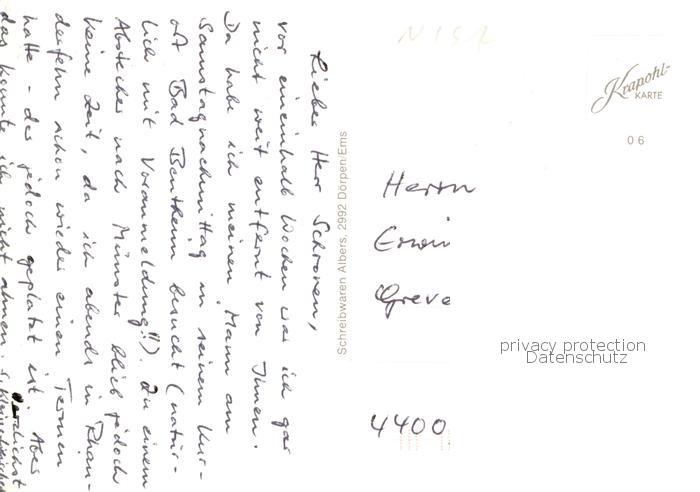 Lieber Herr Schronen,
vor eineinhalb Wochen war ich gar
nicht weit entfernt von Ihnen.
Da habe ich meinen Mann am
Samstagnachmittag in seinem Kur-
ort Bad Bentheim besucht (natür-
lich mit Voranmeldung!!). Zu einem
Abstecher nach Münster blieb jedoch
keine Zeit, da ich abends in Rhau-
derfehn schon wieder einen Termin
hatte - der jedoch geplatzt ist. Aber
das konnte ich nicht ahnen.
herzlichst
Schreibwaren Albers, 2992 Dörpen/Ems
NISA
Krapohl-
KARTE
06
Herrn
Erwin
Greve
privacy protection
Datenschutz
4400